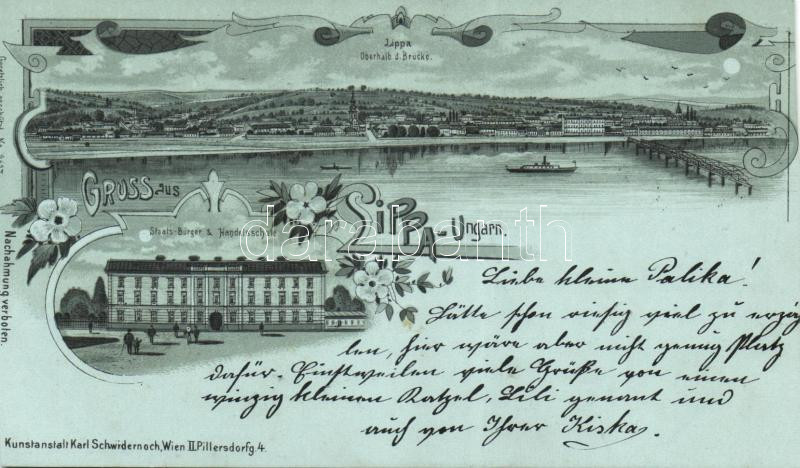 Lippa
Oberhalb d. Brücke.
Gruss aus
Lippa - Ungarn.
Staats-Bürger & Handelsschule
darabanth
Liebe kleine Palika!
Hätte schon riesig viel zu erzäh
len, hier wäre aber nicht genug Platz
dafür. Einstweilen viele Grüße von einem
winzig kleinen Katzel, Lili genannt und
auch von Ihrer Kiska.
Nachahmung verboten.
Kunstanstalt Karl Schwidernoch, Wien II. Pillersdorfg. 4.